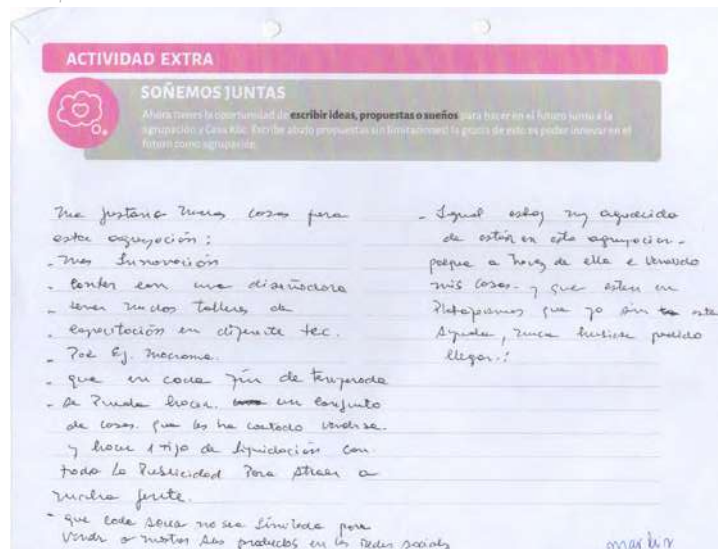 ACTIVIDAD EXTRA
SOÑEMOS JUNTAS
Ahora tienes la oportunidad de escribir ideas, propuestas o sueños para hacer en el futuro junto a la
agrupación y Casa Klic. Escribe abajo propuestas sin limitaciones! la gracia de esto es poder innovar en el
futuro como agrupación.
me gustaria cosas para
esta agrupación :
- mas Innovación
- contar con una diseñadora
- tener talleres de
- capacitación en diferente tec.
- Por Ej. macrame.
- que en cada fin de temporada
- se Pueda hacer. un conjunto
de cosas. que les ha costado
y hacer 1 tipo de liquidación con
toda la Publicidad Para atraer a
mucha gente.
- que cada socia no sea limitada para
o mostrar sus productos en las Redes
- Igual estoy agradecida
de estar en esta agrupacion.
porque a de ella e vendido
mis cosas. y que esten en
que yo sin esta
Ayuda, nunca hubiese podido
llegar.!